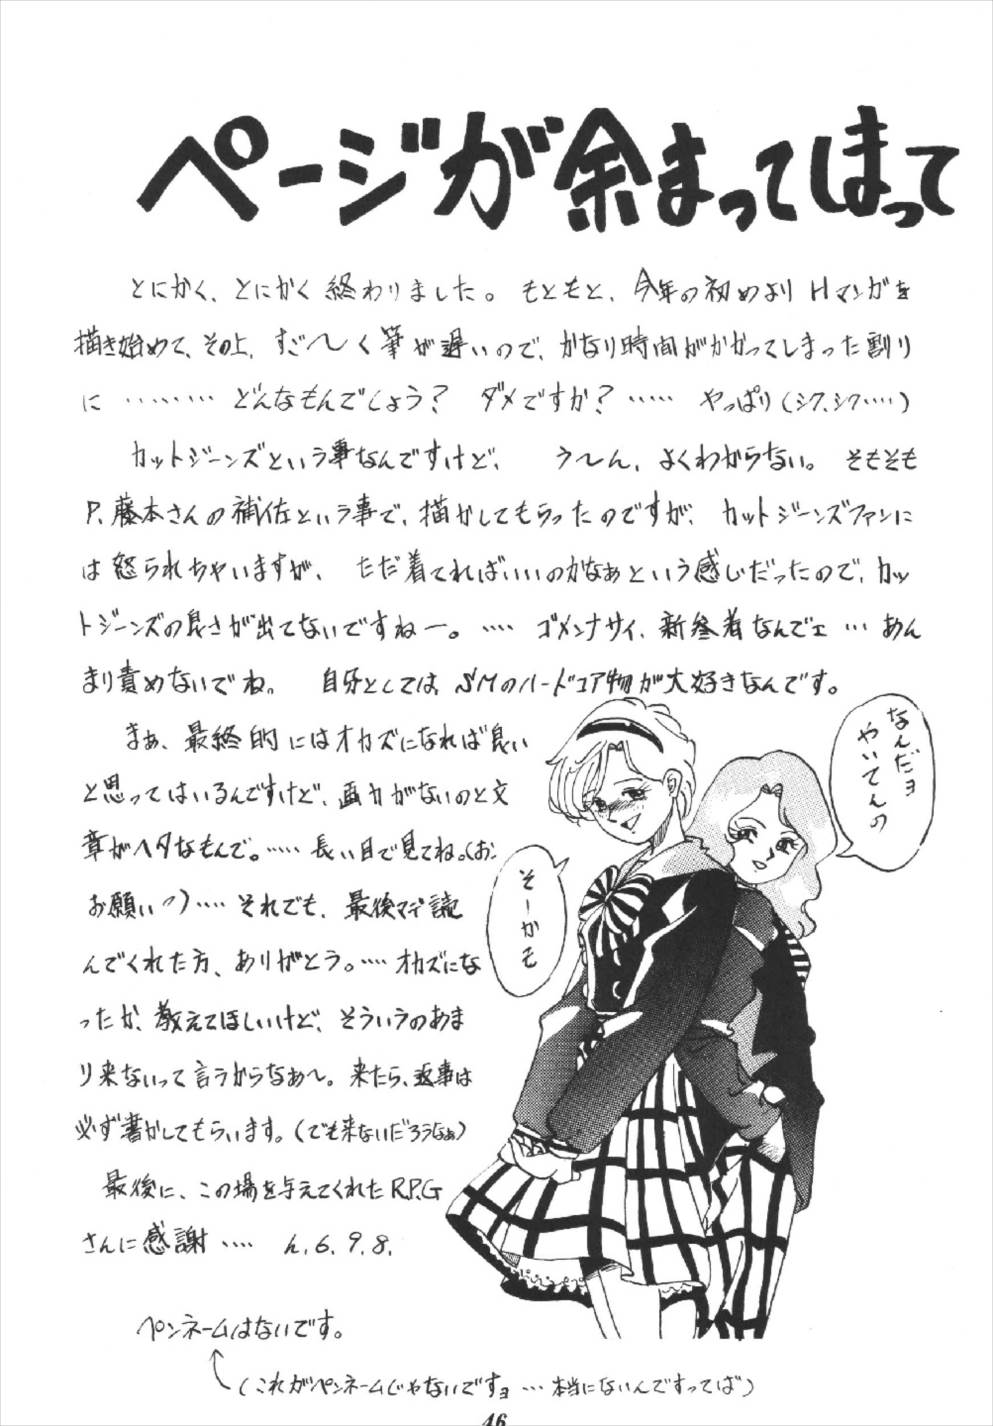 ページが余まってしまって
とにかく、とにかく終わりました。もともと、今年の初めよりHマンガを
描き始めて、その上、すご〜く筆が遅いので、かなり時間がかかってしまった割り
に ……… どんなもんでしょう？ ダメですか？ …… やっぱり（シク、シク……）
カットジーンズという事なんですけど、 う〜ん、よくわからない。そもそも
P.藤本さんの補佐という事で、描かしてもらったのですが、カットジーンズファンに
は怒られちゃいますが、 ただ着てればいいのかなぁという感じだったので、カッ
トジーンズの良さが出てないですねー。…… ゴメンナサイ、新参者なんでェ … あん
まり責めないでね。 自分としては、SMのハードコア物が大好きなんです。
まぁ、最終的にはオカズになれば良い
と思ってはいるんですけど、画力がないのと文
章がヘタなもんで。…… 長い目で見てね。（お、
お願いっ）…… それでも、最後マデ読
んでくれた方、ありがとう。…… オカズにな
ったか、教えてほしいけど、そういうのあま
り来ないって言うからなあ〜。来たら、返事は
必ず書かしてもらいます。（でも来ないだろうなぁ）
最後に、この場を与えてくれたR.P.G
さんに感謝 …… h.6.9.8.
なんだョ
やいてんの
そーかも
ペンネームはないです。
（これがペンネームじゃないですョ … 本当にないんですってば）
46